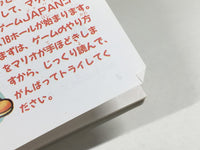 して、マ
ゲームJAPANゴ
18ホールが始まります。
まずは、ゲームのやり方
をマリオが手ほどきしま
すから、じっくり読んで、
がんばってトライしてく
ださい。